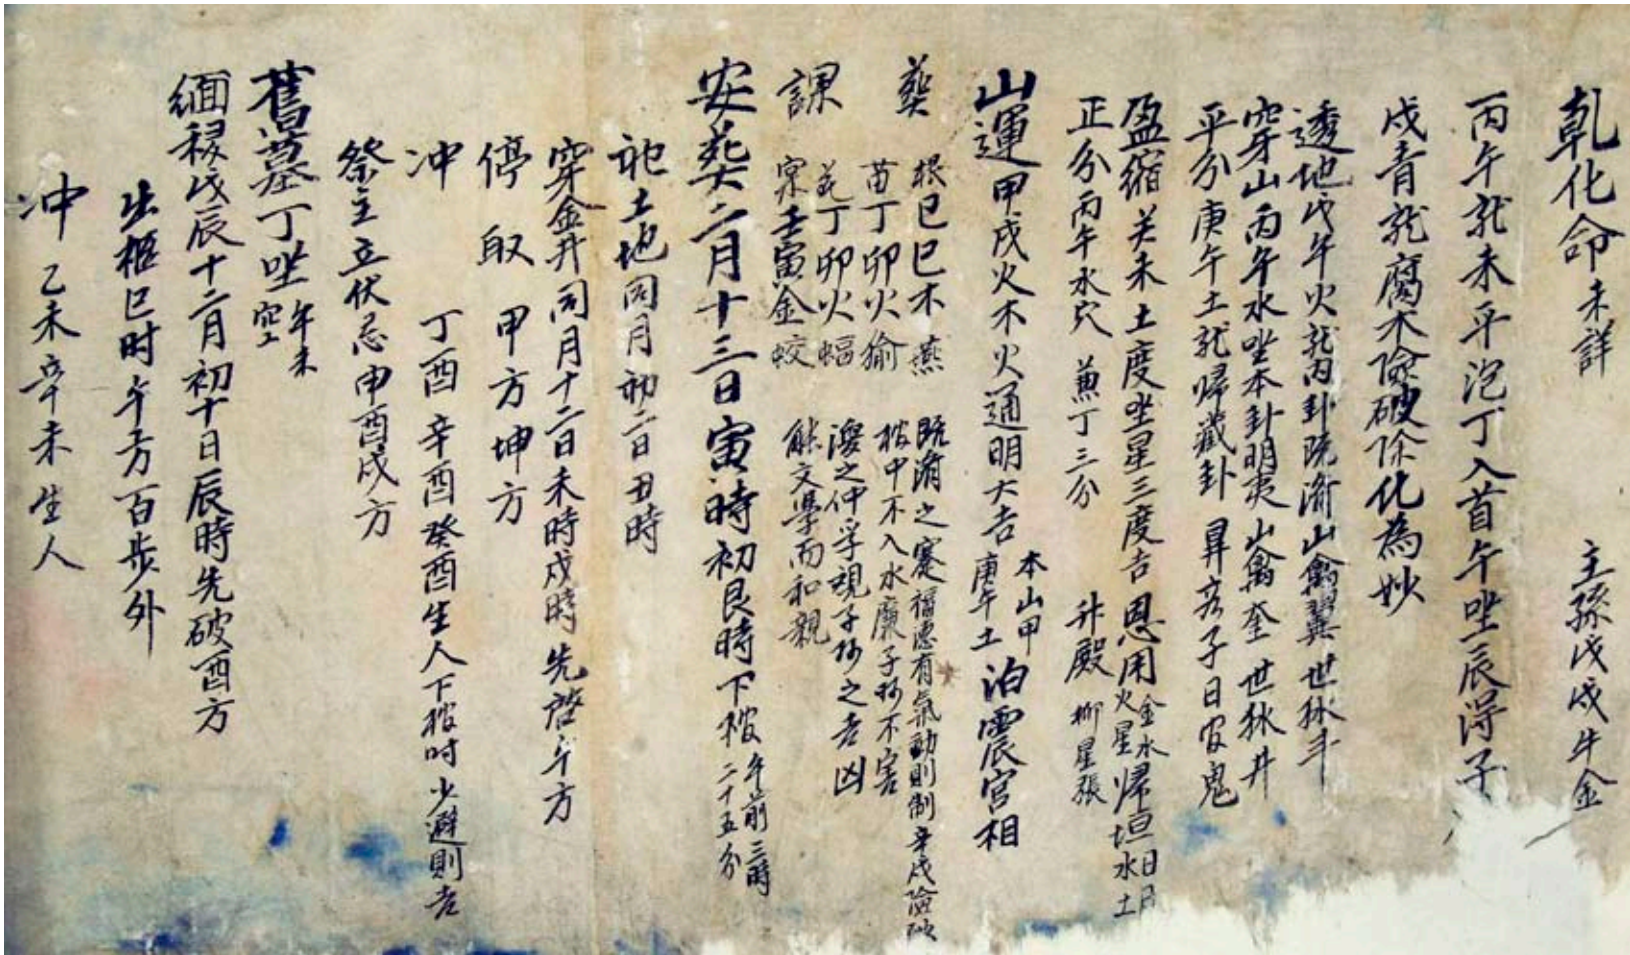 乾化命 未詳 主孫戊戌生金
丙午龍未平泡丁入首午坐辰得子
戌青龍腐木險破除化為妙
透地戊午火龍丙卦既濟山禽翼世狀斗
穿山丙午水坐本卦明夷山禽奎世狀井
平分庚午土龍歸藏卦 昇 子日官鬼
盈縮关未土度坐星三度吉 恩用 金水火星 歸垣 日月水土
正分丙午水穴 兼丁三分 升殿 柳星張
山運甲戌火木火通明大吉 本山甲庚午土 泊震宮相
葬
根己巳木燕 既濟之蹇福德有氣動則制辛戌險破
苗丁卯火猯 中不入水廉子孫不害
課
花丁卯火蝠 漫之仲孚視子孫之吉凶
宲壬寅金蛟 能文學而和親
安葬二月十三日寅時初艮時下 午前三時二十五分
祀土地同月初二日丑時
穿金井同月十二日未時戌時 先啓午方
停 取 甲方坤方
冲 丁酉辛酉癸酉生人下 时少避則吉
祭主立伏忌申酉戌方
舊墓丁坐 午未空亡
緬禄戊辰十二月初十日辰時先破酉方
出柩巳时午方百步外
冲 乙未辛未生人